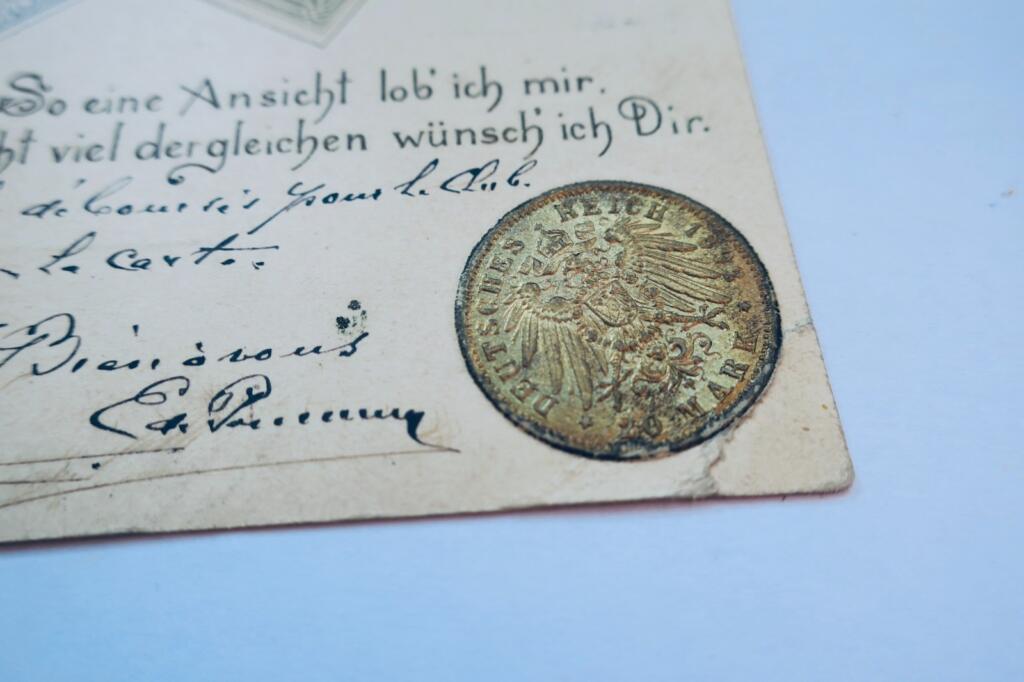 So eine Ansicht lob' ich mir.
ht viel dergleichen wünsch' ich Dir.
pour le Club.
la carte.
Bien à vous
DEUTSCHES REICH
20 MARK